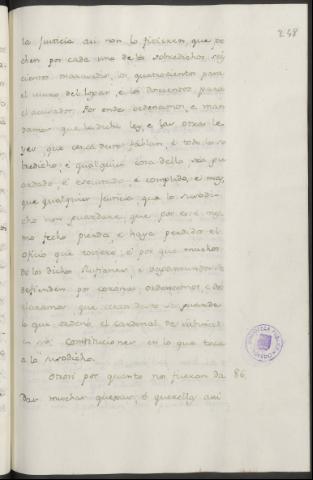 248
la justicia asi non lo ficieren, que pe
chen por cada uno de los sobredichos, seis
cientos maravedis, los quatrocientos para
el muro del logar, e los doscientos para
el acusador. Por ende ordenamos, e man
damos que la dicha ley, e las otras le
yes que cerca desto fablan, e todo lo so
bredicho, e qualquier cosa dello sea gu
ardado, e executado, e complido, e mas,
que qualquier justicia que lo susodi
cho non guardare, que por ese mes
mo fecho pierda, e haya perdido el
oficio que toviere; e por que muchos
de los dichos Rufianes, e vagamundos se
defienden por coronas, ordenamos, e de
claramos que cerca desto se guarde
lo que ordenó el cardenal de
en sus Constituciones en lo que toca
a lo susodicho.
Otrosi por quanto nos fueron da 86.
das muchas quexas, e querellas asi